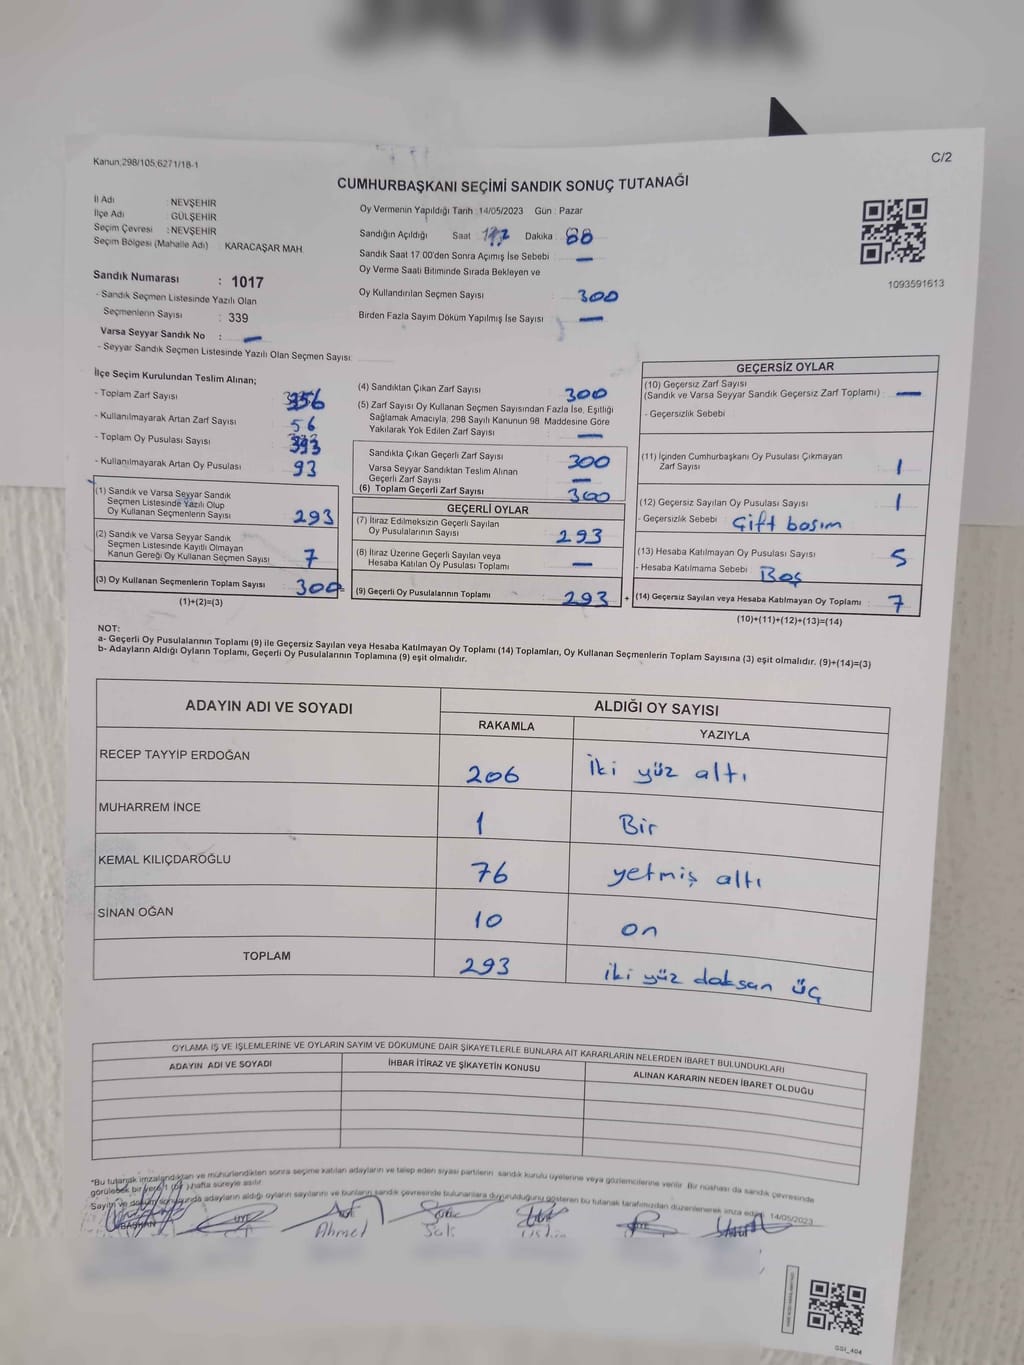 SANDIK
Kanun,298/105,6271/18-1
C/2
CUMHURBAŞKANI SEÇİMİ SANDIK SONUÇ TUTANAĞI
İl Adı : NEVŞEHİR
İlçe Adı : GÜLŞEHİR
Seçim Çevresi : NEVŞEHİR
Seçim Bölgesi (Mahalle Adı) : KARACAŞAR MAH.
Sandık Numarası : 1017
- Sandık Seçmen Listesinde Yazılı Olan
Seçmenlerin Sayısı : 339
Varsa Seyyar Sandık No : —
- Seyyar Sandık Seçmen Listesinde Yazılı Olan Seçmen Sayısı:
Oy Vermenin Yapıldığı Tarih : 14/05/2023 Gün : Pazar
Sandığın Açıldığı Saat Dakika
Sandık Saat 17.00'den Sonra Açımış İse Sebebi —
Oy Verme Saati Bitiminde Sırada Bekleyen ve
Oy Kullandırılan Seçmen Sayısı 300
Birden Fazla Sayım Döküm Yapılmış İse Sayısı —
1093591613
İlçe Seçim Kurulundan Teslim Alınan;
- Toplam Zarf Sayısı 356
- Kullanılmayarak Artan Zarf Sayısı 56
- Toplam Oy Pusulası Sayısı 393
- Kullanılmayarak Artan Oy Pusulası 93
(1) Sandık ve Varsa Seyyar Sandık
Seçmen Listesinde Yazılı Olup
Oy Kullanan Seçmenlerin Sayısı 293
(2) Sandık ve Varsa Seyyar Sandık
Seçmen Listesinde Kayıtlı Olmayan
Kanun Gereği Oy Kullanan Seçmen Sayısı 7
(3) Oy Kullanan Seçmenlerin Toplam Sayısı 300 =
(1)+(2)=(3)
(4) Sandıktan Çıkan Zarf Sayısı 300
(5) Zarf Sayısı Oy Kullanan Seçmen Sayısından Fazla İse, Eşitliği
Sağlamak Amacıyla, 298 Sayılı Kanunun 98. Maddesine Göre
Yakılarak Yok Edilen Zarf Sayısı —
Sandıkla Çıkan Geçerli Zarf Sayısı 300
Varsa Seyyar Sandıktan Teslim Alınan
Geçerli Zarf Sayısı —
(6) Toplam Geçerli Zarf Sayısı 300
GEÇERLİ OYLAR
(7) İtiraz Edilmeksizin Geçerli Sayılan
Oy Pusulalarının Sayısı 293
(8) İtiraz Üzerine Geçerli Sayılan veya
Hesaba Katılan Oy Pusulası Toplamı —
(9) Geçerli Oy Pusulalarının Toplamı 293 +
GEÇERSİZ OYLAR
(10) Geçersiz Zarf Sayısı
(Sandık ve Varsa Seyyar Sandık Geçersiz Zarf Toplamı) : —
- Geçersizlik Sebebi :
(11) İçinden Cumhurbaşkanı Oy Pusulası Çıkmayan
Zarf Sayısı 1
(12) Geçersiz Sayılan Oy Pusulası Sayısı 1
- Geçersizlik Sebebi : Çift basım
(13) Hesaba Katılmayan Oy Pusulası Sayısı 5
- Hesaba Katılmama Sebebi : Boş
(14) Geçersiz Sayılan veya Hesaba Katılmayan Oy Toplamı : 7
(10)+(11)+(12)+(13)=(14)
NOT:
a- Geçerli Oy Pusulalarının Toplamı (9) ile Geçersiz Sayılan veya Hesaba Katılmayan Oy Toplamı (14) Toplamları, Oy Kullanan Seçmenlerin Toplam Sayısına (3) eşit olmalıdır. (9)+(14)=(3)
b- Adayların Aldığı Oyların Toplamı, Geçerli Oy Pusulalarının Toplamına (9) eşit olmalıdır.
ADAYIN ADI VE SOYADI
ALDIĞI OY SAYISI
RAKAMLA YAZIYLA
RECEP TAYYİP ERDOĞAN 206 iki yüz altı
MUHARREM İNCE 1 Bir
KEMAL KILIÇDAROĞLU 76 yetmiş altı
SİNAN OĞAN 10 on
TOPLAM 293 iki yüz doksan üç
OYLAMA İŞ VE İŞLEMLERİNE VE OYLARIN SAYIM VE DÖKÜMÜNE DAİR ŞİKAYETLERLE BUNLARA AİT KARARLARIN NELERDEN İBARET BULUNDUKLARI
ADAYIN ADI VE SOYADI İHBAR İTİRAZ VE ŞİKAYETİN KONUSU ALINAN KARARIN NEDEN İBARET OLDUĞU
"Bu tutanak imzalandıktan ve mühürlendikten sonra seçime katılan adayların ve talep eden siyasi partilerin sandık kurulu üyelerine veya gözlemcilerine verilir. Bir nüshası da sandık çevresinde
görülebilecek bir yere 1 (bir) hafta süreyle asılır.
Sayım ve döküm sonucunda adayların aldığı oyların sayılarını ve bunların sandık çevresinde bulunanlara duyurulduğunu gösteren bu tutanak tarafımızdan düzenlenerek imza edildi. 14/05/2023
BAŞKAN ÜYE
Ahmet
GSI_404